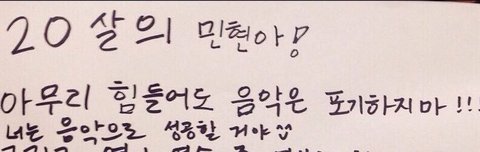 20살의 민현아!
아무리 힘들어도 음악은 포기하지마!!!
너는 음악으로 성공할 거야